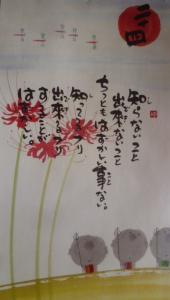 二四
知らないこと
出来ないこと
ちっとも はずかしい事ない。
知ってるフリ
出来るフリ
することが
はずかしい。